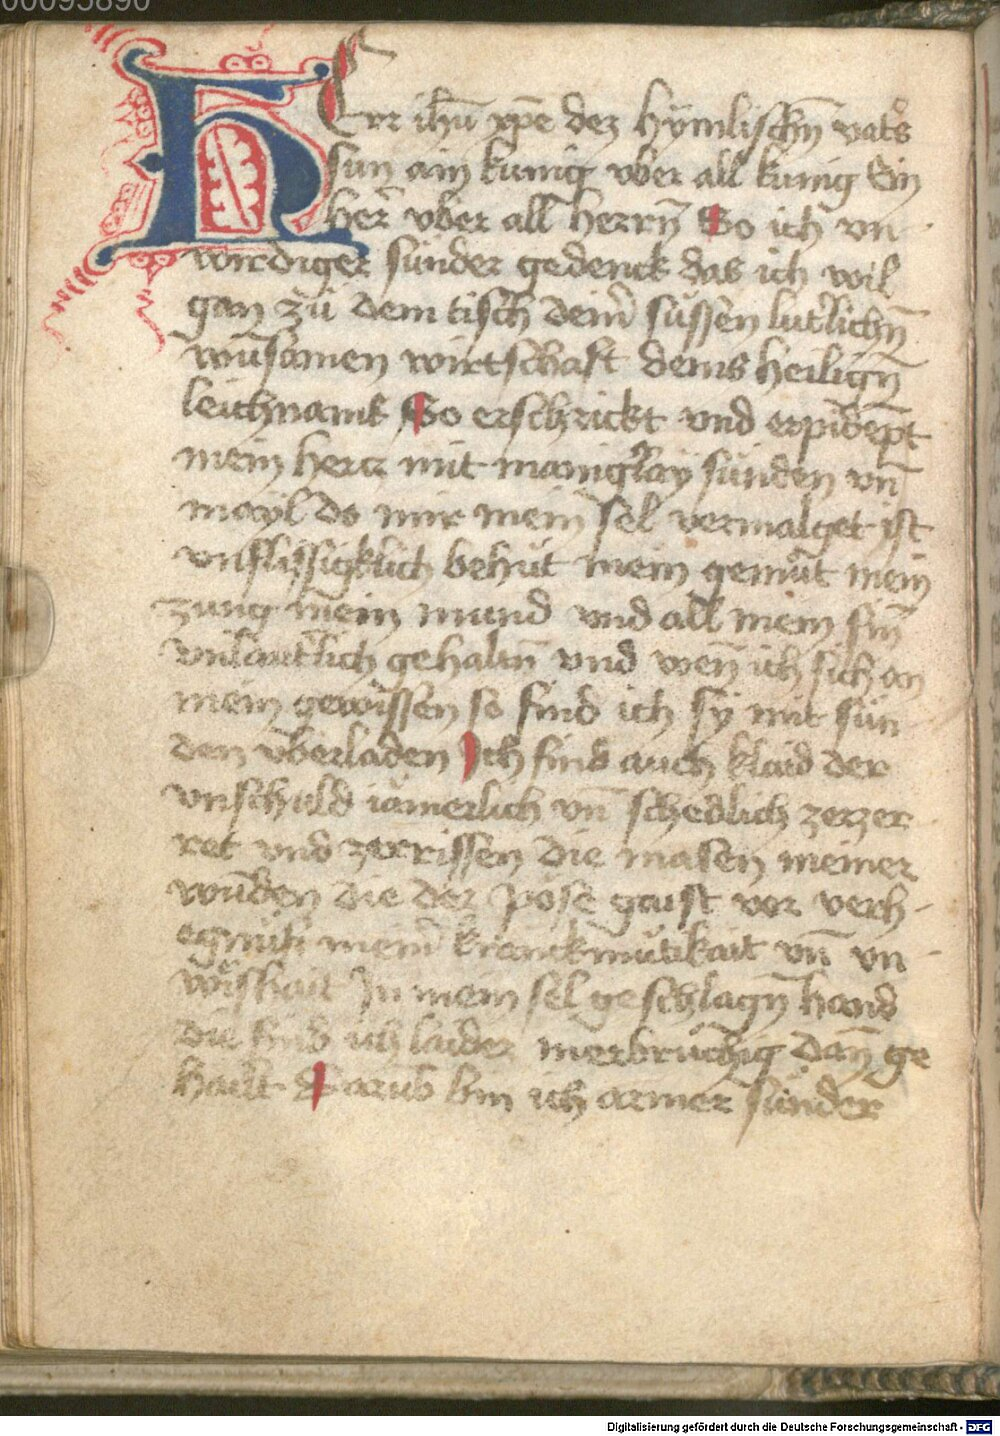 00095890
HErr ihū xpē dez hymlischn̄ vaters
sun ain kunig vber all kunig Ein
herr vber all herrn̄ So ich vn
wirdiger sünder gedenck das ich wil
gan zü dem tisch deiner süssen lutterlichn̄
wunsamen wirtschaft deins heilign̄
leichnams So erschrickt vnd erpidempt
mein hercz mit manigerlay sünden vn̄
mayl do mir mein sel vermalget ist
vnflissigklich behüt mein gemüt mein
zung mein mund vnd all mein sin̄
vnlauterlich gehaltn̄ vnd wen̄ ich sich an
mein gewissen so find ich sy mit sün
den vberladen Ich find auch klaid der
vnschuld iamerlich vn̄ schedlich zerzer
ret vnd zerrissen die masen meiner
wūden die der pöse gaist vor verh
meiner kranckmütikait vn̄ vn
wishait In mein sel geschlagn̄ hand
die find ich laider merbrüchig dan̄ ge
hailt Darub bin ich armer sünder
Digitalisierung gefördert durch die Deutsche Forschungsgemeinschaft - DFG